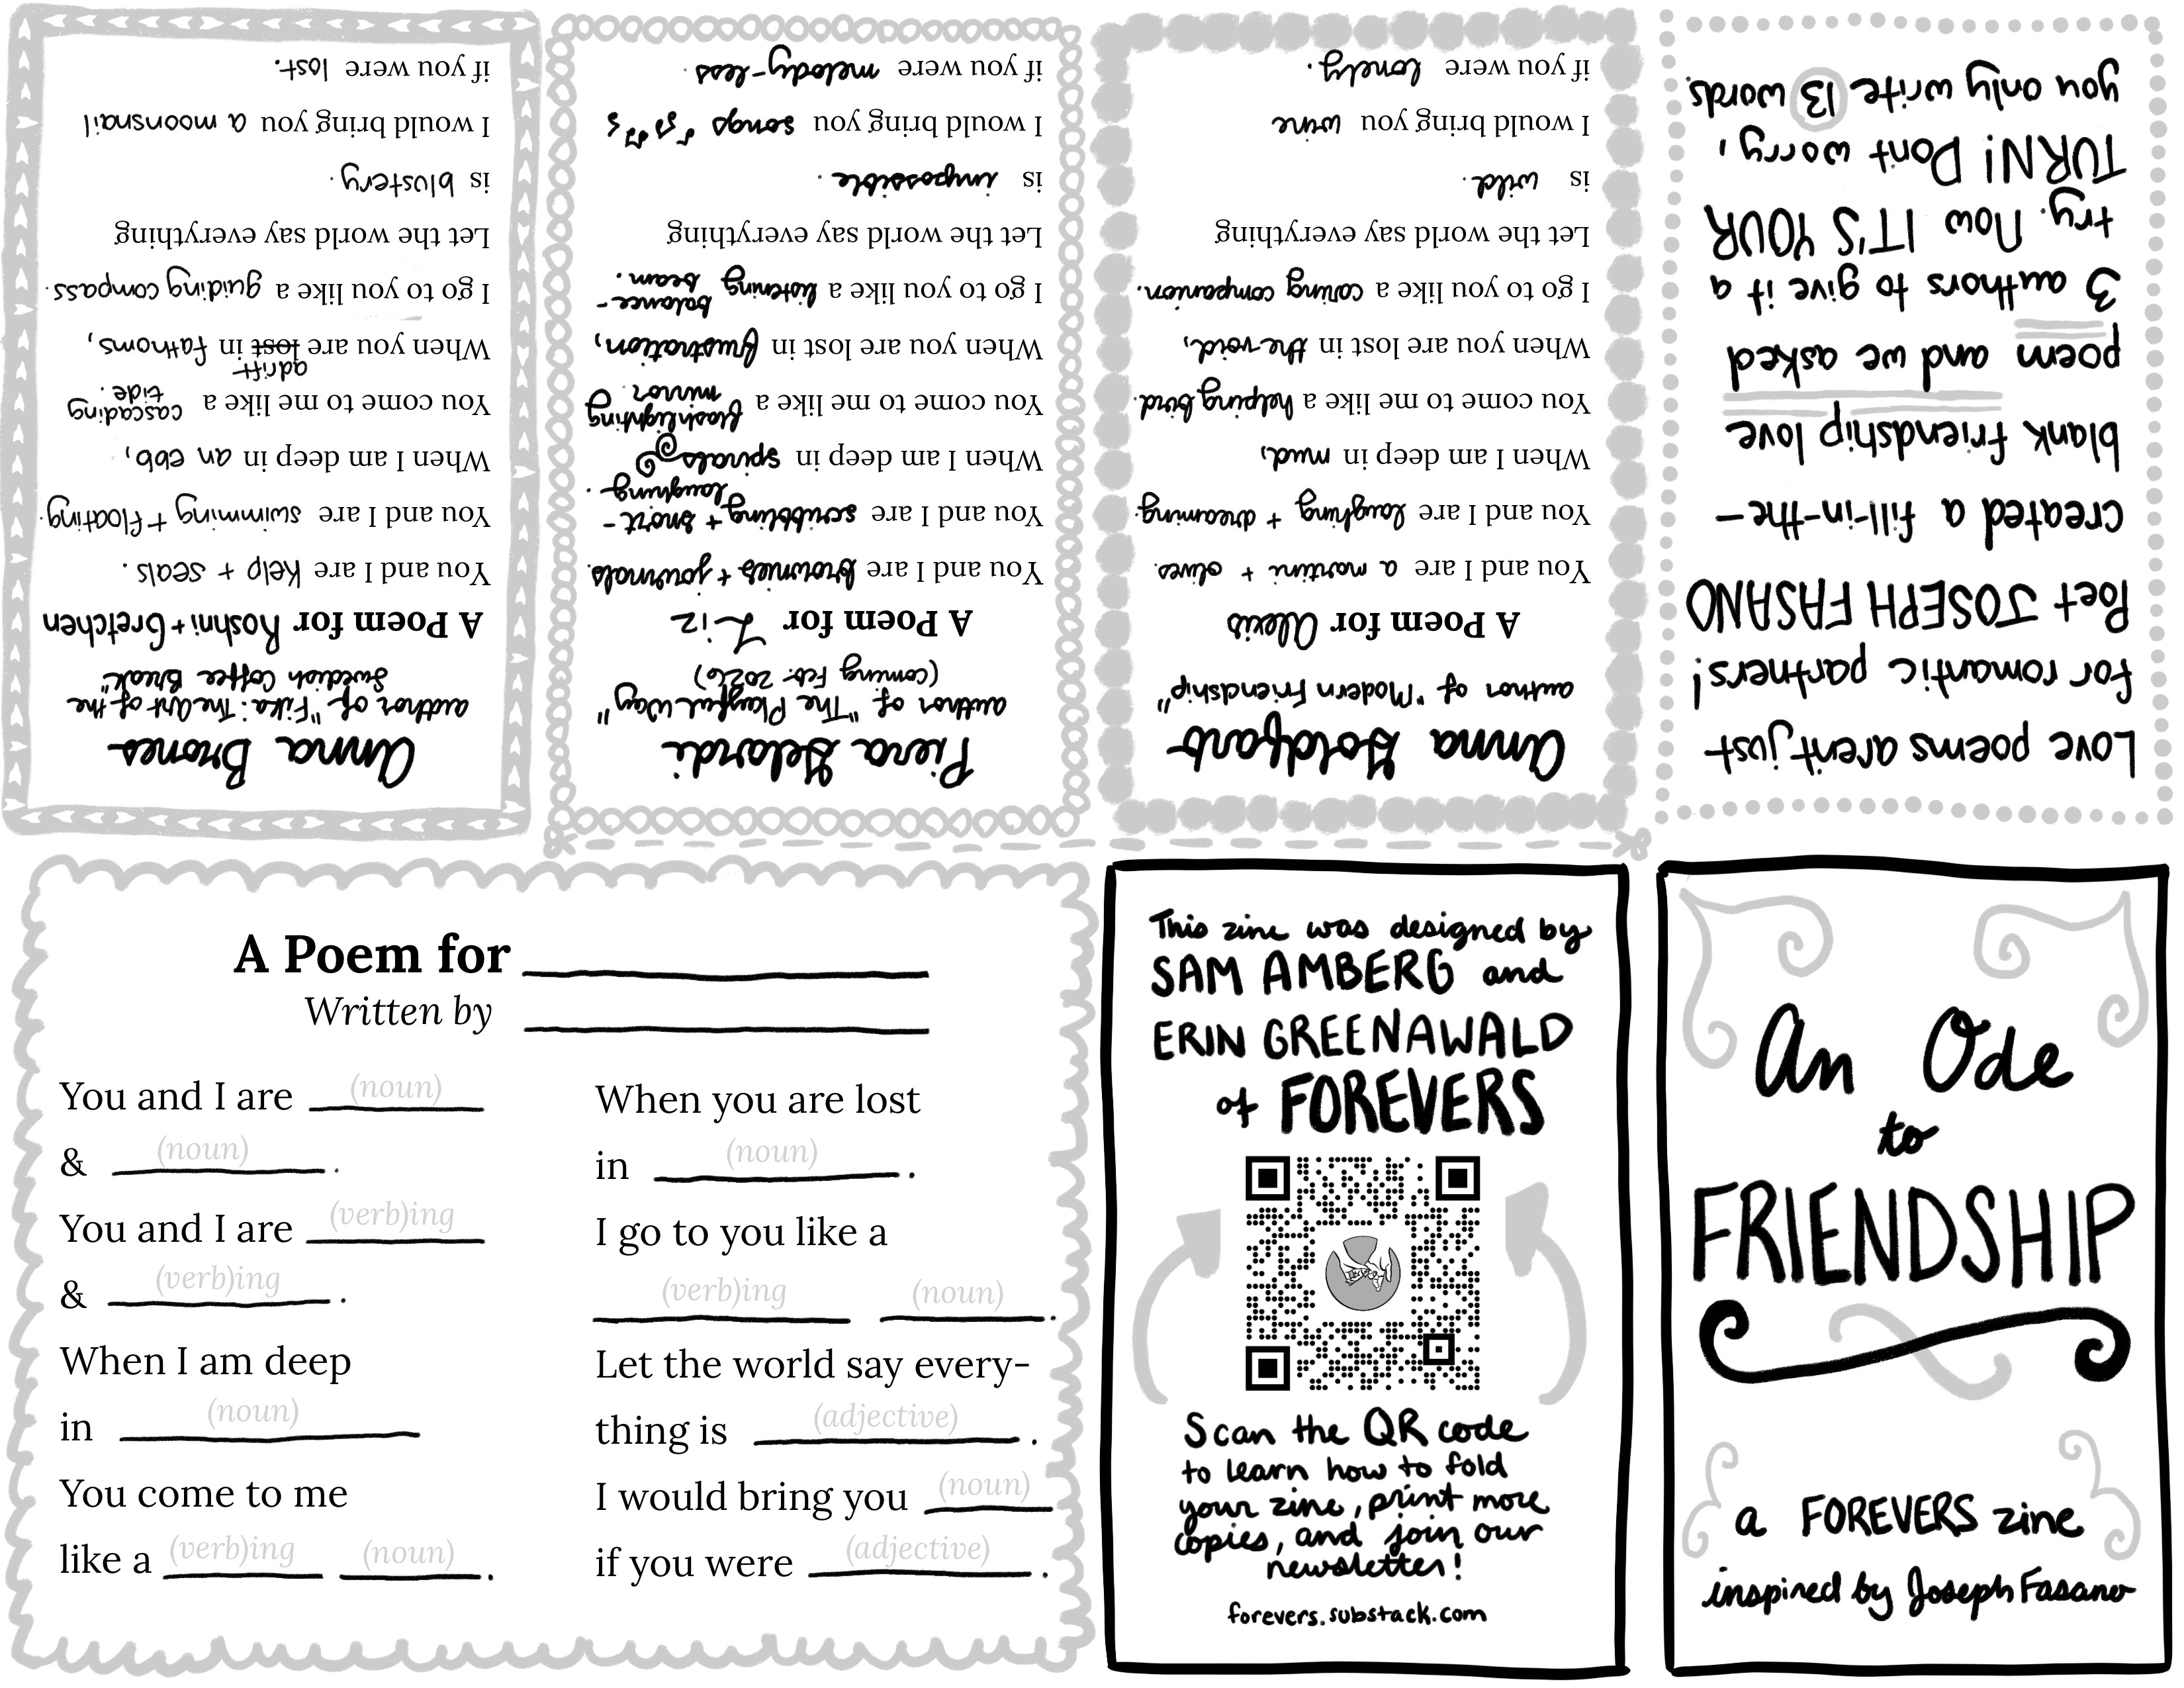 An Ode
to
FRIENDSHIP
a FOREVERS zine
inspired by Joseph Fasano
Love poems arent just
for romantic partners!
Poet JOSEPH FASANO
created a fill-in-the-
blank friendship love
poem and we asked
3 authors to give it a
try. Now IT'S YOUR
TURN! Dont worry,
you only write 13 words.
Anna Goldfarb
author of "Modern Friendship"
A Poem for Alexis
You and I are a martini + olives.
You and I are laughing + dreaming.
When I am deep in mud,
You come to me like a helping bird.
When you are lost in the void,
I go to you like a caring companion.
Let the world say everything
is wild.
I would bring you wine
if you were lonely.
Piera Gelardi
author of "The Playful Way"
(coming Feb. 2026)
A Poem for Liz
You and I are brownies + journals.
You and I are scribbling + snort-
laughing.
When I am deep in spirals
You come to me like a flashlighting
mirror.
When you are lost in frustration,
I go to you like a listening balance-
beam.
Let the world say everything
is impossible.
I would bring you songs
if you were melody-less.
Anna Brones
author of "Fika: The Art of the
Swedish Coffee Break"
A Poem for Roshni + Gretchen
You and I are kelp + seals.
You and I are swimming + floating.
When I am deep in an ebb,
You come to me like a cascading
tide.
adrift
When you are lost in fathoms,
I go to you like a guiding compass.
Let the world say everything
is blustery.
I would bring you a moonsnail
if you were lost.
A Poem for
Written by
You and I are (noun)
& (noun).
You and I are (verb)ing
& (verb)ing.
When I am deep
in (noun)
You come to me
like a (verb)ing (noun).
When you are lost
in (noun).
I go to you like a
(verb)ing (noun).
Let the world say every-
thing is (adjective).
I would bring you (noun)
if you were (adjective).
This zine was designed by
SAM AMBERG and
ERIN GREENAWALD
of FOREVERS
Scan the QR code
to learn how to fold
your zine, print more
copies, and join our
newsletter!
forevers.substack.com